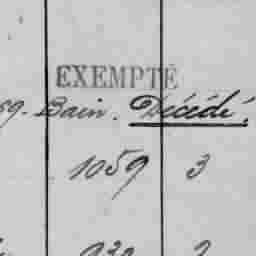 EXEMPTÉ
59. Bain. Décédé.
1059 3